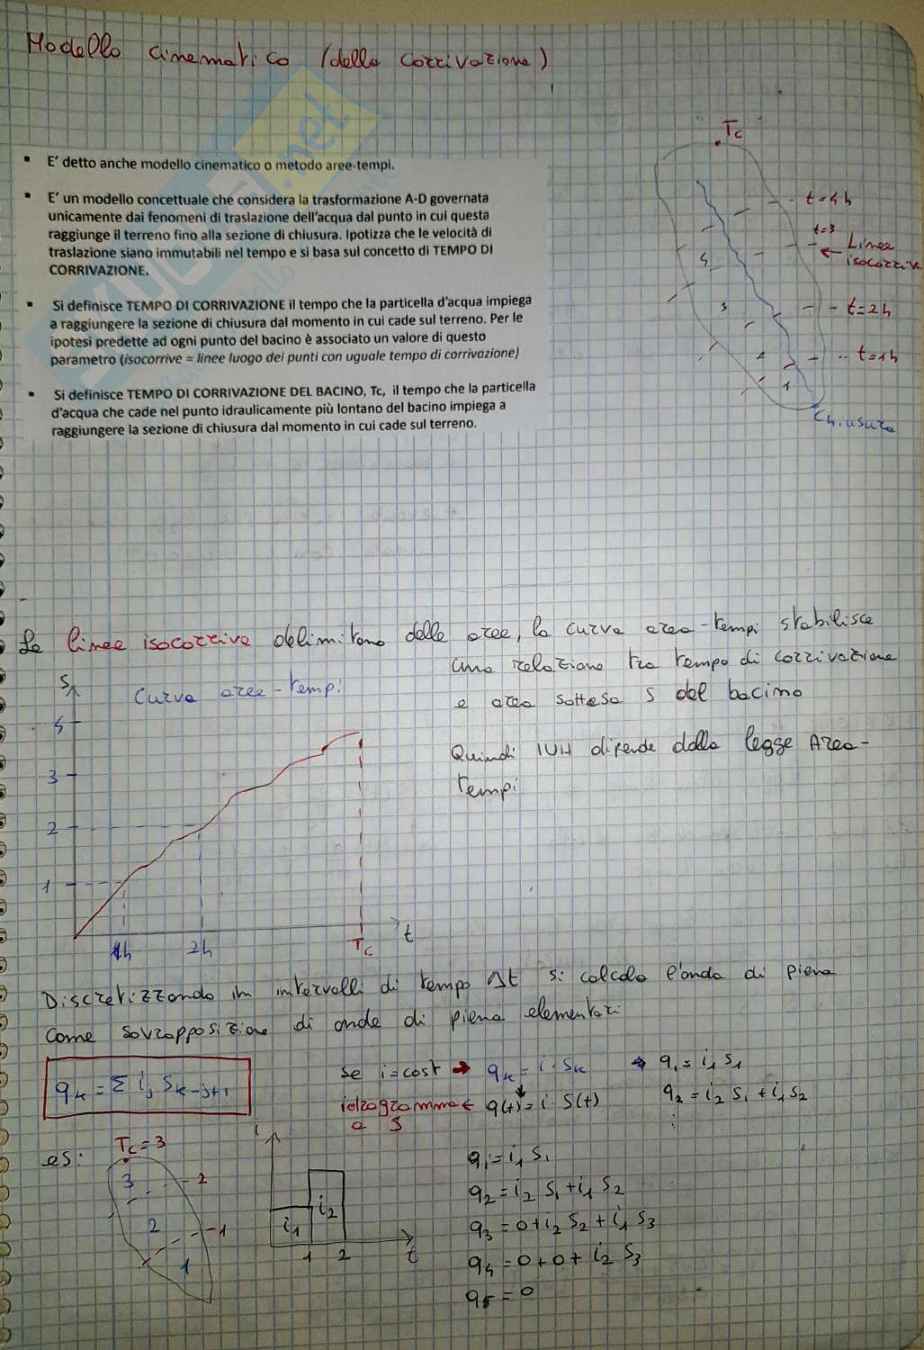 Modello cinematico (della corrivazione)
▪ E' detto anche modello cinematico o metodo aree-tempi.
▪ E' un modello concettuale che considera la trasformazione A-D governata
unicamente dai fenomeni di traslazione dell'acqua dal punto in cui questa
raggiunge il terreno fino alla sezione di chiusura. Ipotizza che le velocità di
traslazione siano immutabili nel tempo e si basa sul concetto di TEMPO DI
CORRIVAZIONE.
▪ Si definisce TEMPO DI CORRIVAZIONE il tempo che la particella d'acqua impiega
a raggiungere la sezione di chiusura dal momento in cui cade sul terreno. Per le
ipotesi predette ad ogni punto del bacino è associato un valore di questo
parametro (isocorrive = linee luogo dei punti con uguale tempo di corrivazione)
▪ Si definisce TEMPO DI CORRIVAZIONE DEL BACINO, Tc, il tempo che la particella
d'acqua che cade nel punto idraulicamente più lontano del bacino impiega a
raggiungere la sezione di chiusura dal momento in cui cade sul terreno.
Tc
t=4h
t=3
← Linee
isocorrive
4
3
t=2h
2
t=1h
1
Chiusura
Le linee isocorrive delimitano delle aree, la curva area-tempi stabilisce
una relazione tra tempo di corrivazione
e area sottesa S del bacino
Quindi IUH dipende dalla legge Area-
tempi
S
Curva aree-tempi
4
3
2
1
1h 2h Tc t
Discretizzando in intervalli di tempo Δt si calcola l'onda di piena
come sovrapposizione di onde di piena elementari
qk = Σ ij Sk-j+1
Se i=cost → qk = i · Sk → q1 = i1 S1
idrogramma q(t) = i S(t) q2 = i2 S1 + i1 S2
a S
es: Tc=3
3 2
2 1
1
i
i1 i2
1 2 t
q1 = i1 S1
q2 = i2 S1 + i1 S2
q3 = 0 + i2 S2 + i1 S3
q4 = 0 + 0 + i2 S3
q5 = 0